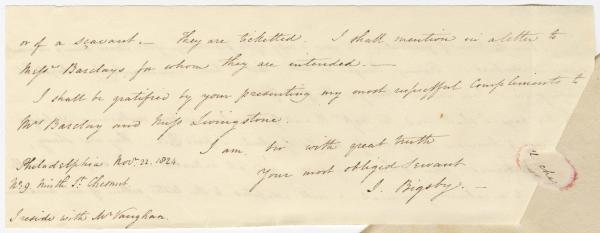 or of a scavant. — They are ticketted. I shall mention in a letter to
Messrs Barclays for whom they are intended. —
I shall be gratified by your presenting my most respectful Compliments to
Mrs Barclay and Miss Livingstone.
I am Sir with great truth
Your most obliged Servant
J. Bigsby. —
Philadelphia Novr. 22. 1824.
No. 9. Ninth St. Chesnut.
I reside with Mr Vaughan.